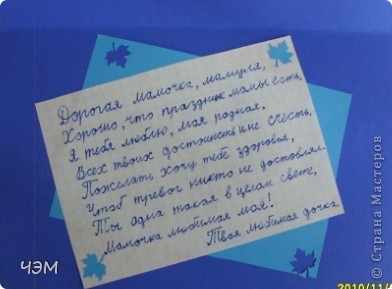 Дорогая мамочка, мамуля,
Хорошо, что праздник мамы есть,
Я тебя люблю, моя родная,
Всех твоих достоинств и не счесть.
Пожелать хочу тебе здоровья,
Чтоб тревог никто не доставлял.
Ты одна такая в целом свете,
Мамочка любимая моя!
Твоя любимая дочка.
ЧЭМ
© Страна Мастеров